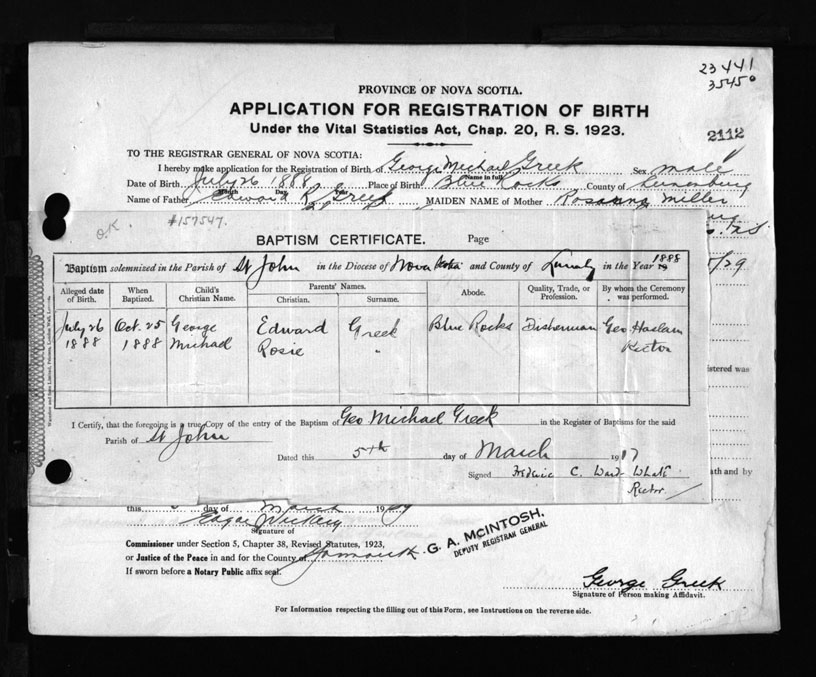 23441
35450
PROVINCE OF NOVA SCOTIA.
APPLICATION FOR REGISTRATION OF BIRTH
Under the Vital Statistics Act, Chap. 20, R. S. 1923.
2112
TO THE REGISTRAR GENERAL OF NOVA SCOTIA:
I hereby make application for the Registration of Birth of George Michael Greek Sex male
Name in full
Date of Birth July 26 1888 Place of Birth Blue Rocks County of Lunenburg
Month Day
Name of Father Edward Greek MAIDEN NAME of Mother Rosanna Miller
O.K. #157547.
N.S.
BAPTISM CERTIFICATE. Page
Baptism solemnized in the Parish of St John in the Diocese of Nova Scotia and County of Lunenbg in the Year 1888
/29
Alleged date of Birth. When Baptized. Child's Christian Name. Parents' Names. Christian. Surname. Abode. Quality, Trade, or Profession. By whom the Ceremony was performed.
July 26 Oct. 25 George Edward Greek Blue Rocks Fisherman Geo Haslam
1888 1888 Michael Rosie " Rector
istered was
I Certify, that the foregoing is a true Copy of the entry of the Baptism of Geo Michael Greek in the Register of Baptisms for the said
Parish of St John
Dated this 5th day of March 1917
ath and by
Signed Frederic C. Ward-Whate
Rector
this day of March 19
Signature of
Commissioner under Section 5, Chapter 38, Revised Statutes, 1923,
or Justice of the Peace in and for the County of Yarmouth.
G. A. McINTOSH,
DEPUTY REGISTRAR GENERAL
If sworn before a Notary Public affix seal.
George Greek
Signature of Person making Affidavit.
For Information respecting the filling out of this Form, see Instructions on the reverse side.